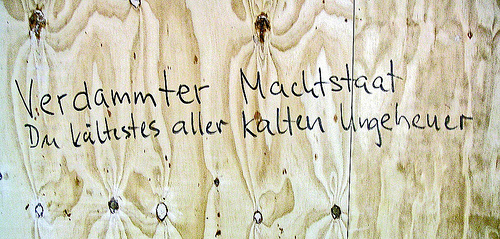 Verdammter Machtstaat
Du kältestes aller kalten Ungeheuer